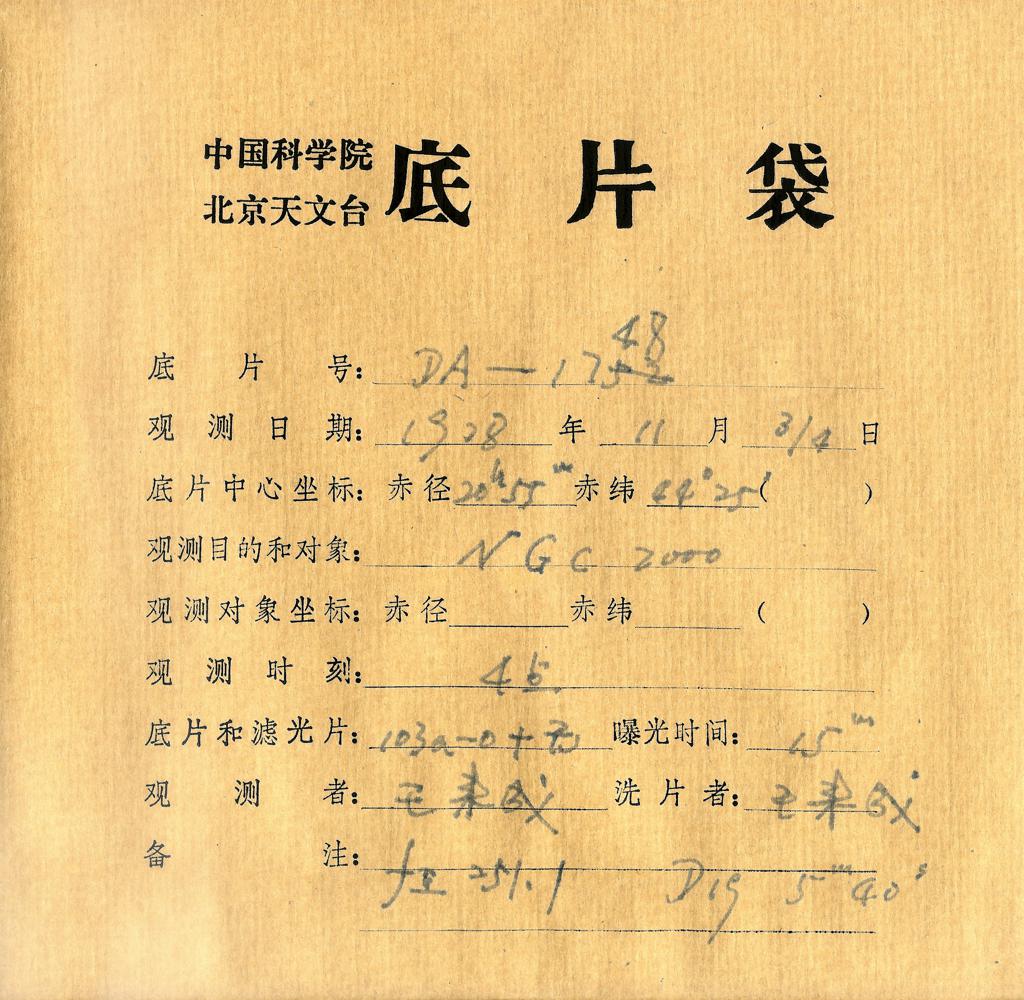 中国科学院
北京天文台 底片袋
底片号: DA-1748
观测日期: 1978 年 11 月 3/4 日
底片中心坐标: 赤径 20ʰ55ᵐ 赤纬 44°25′ ( )
观测目的和对象: NGC 7000
观测对象坐标: 赤径 赤纬 ( )
观测时刻:
底片和滤光片: 103a-O+无 曝光时间: 15ᵐ
观测者: 洗片者:
备注:
251.1 D19 5ᵐ40ˢ